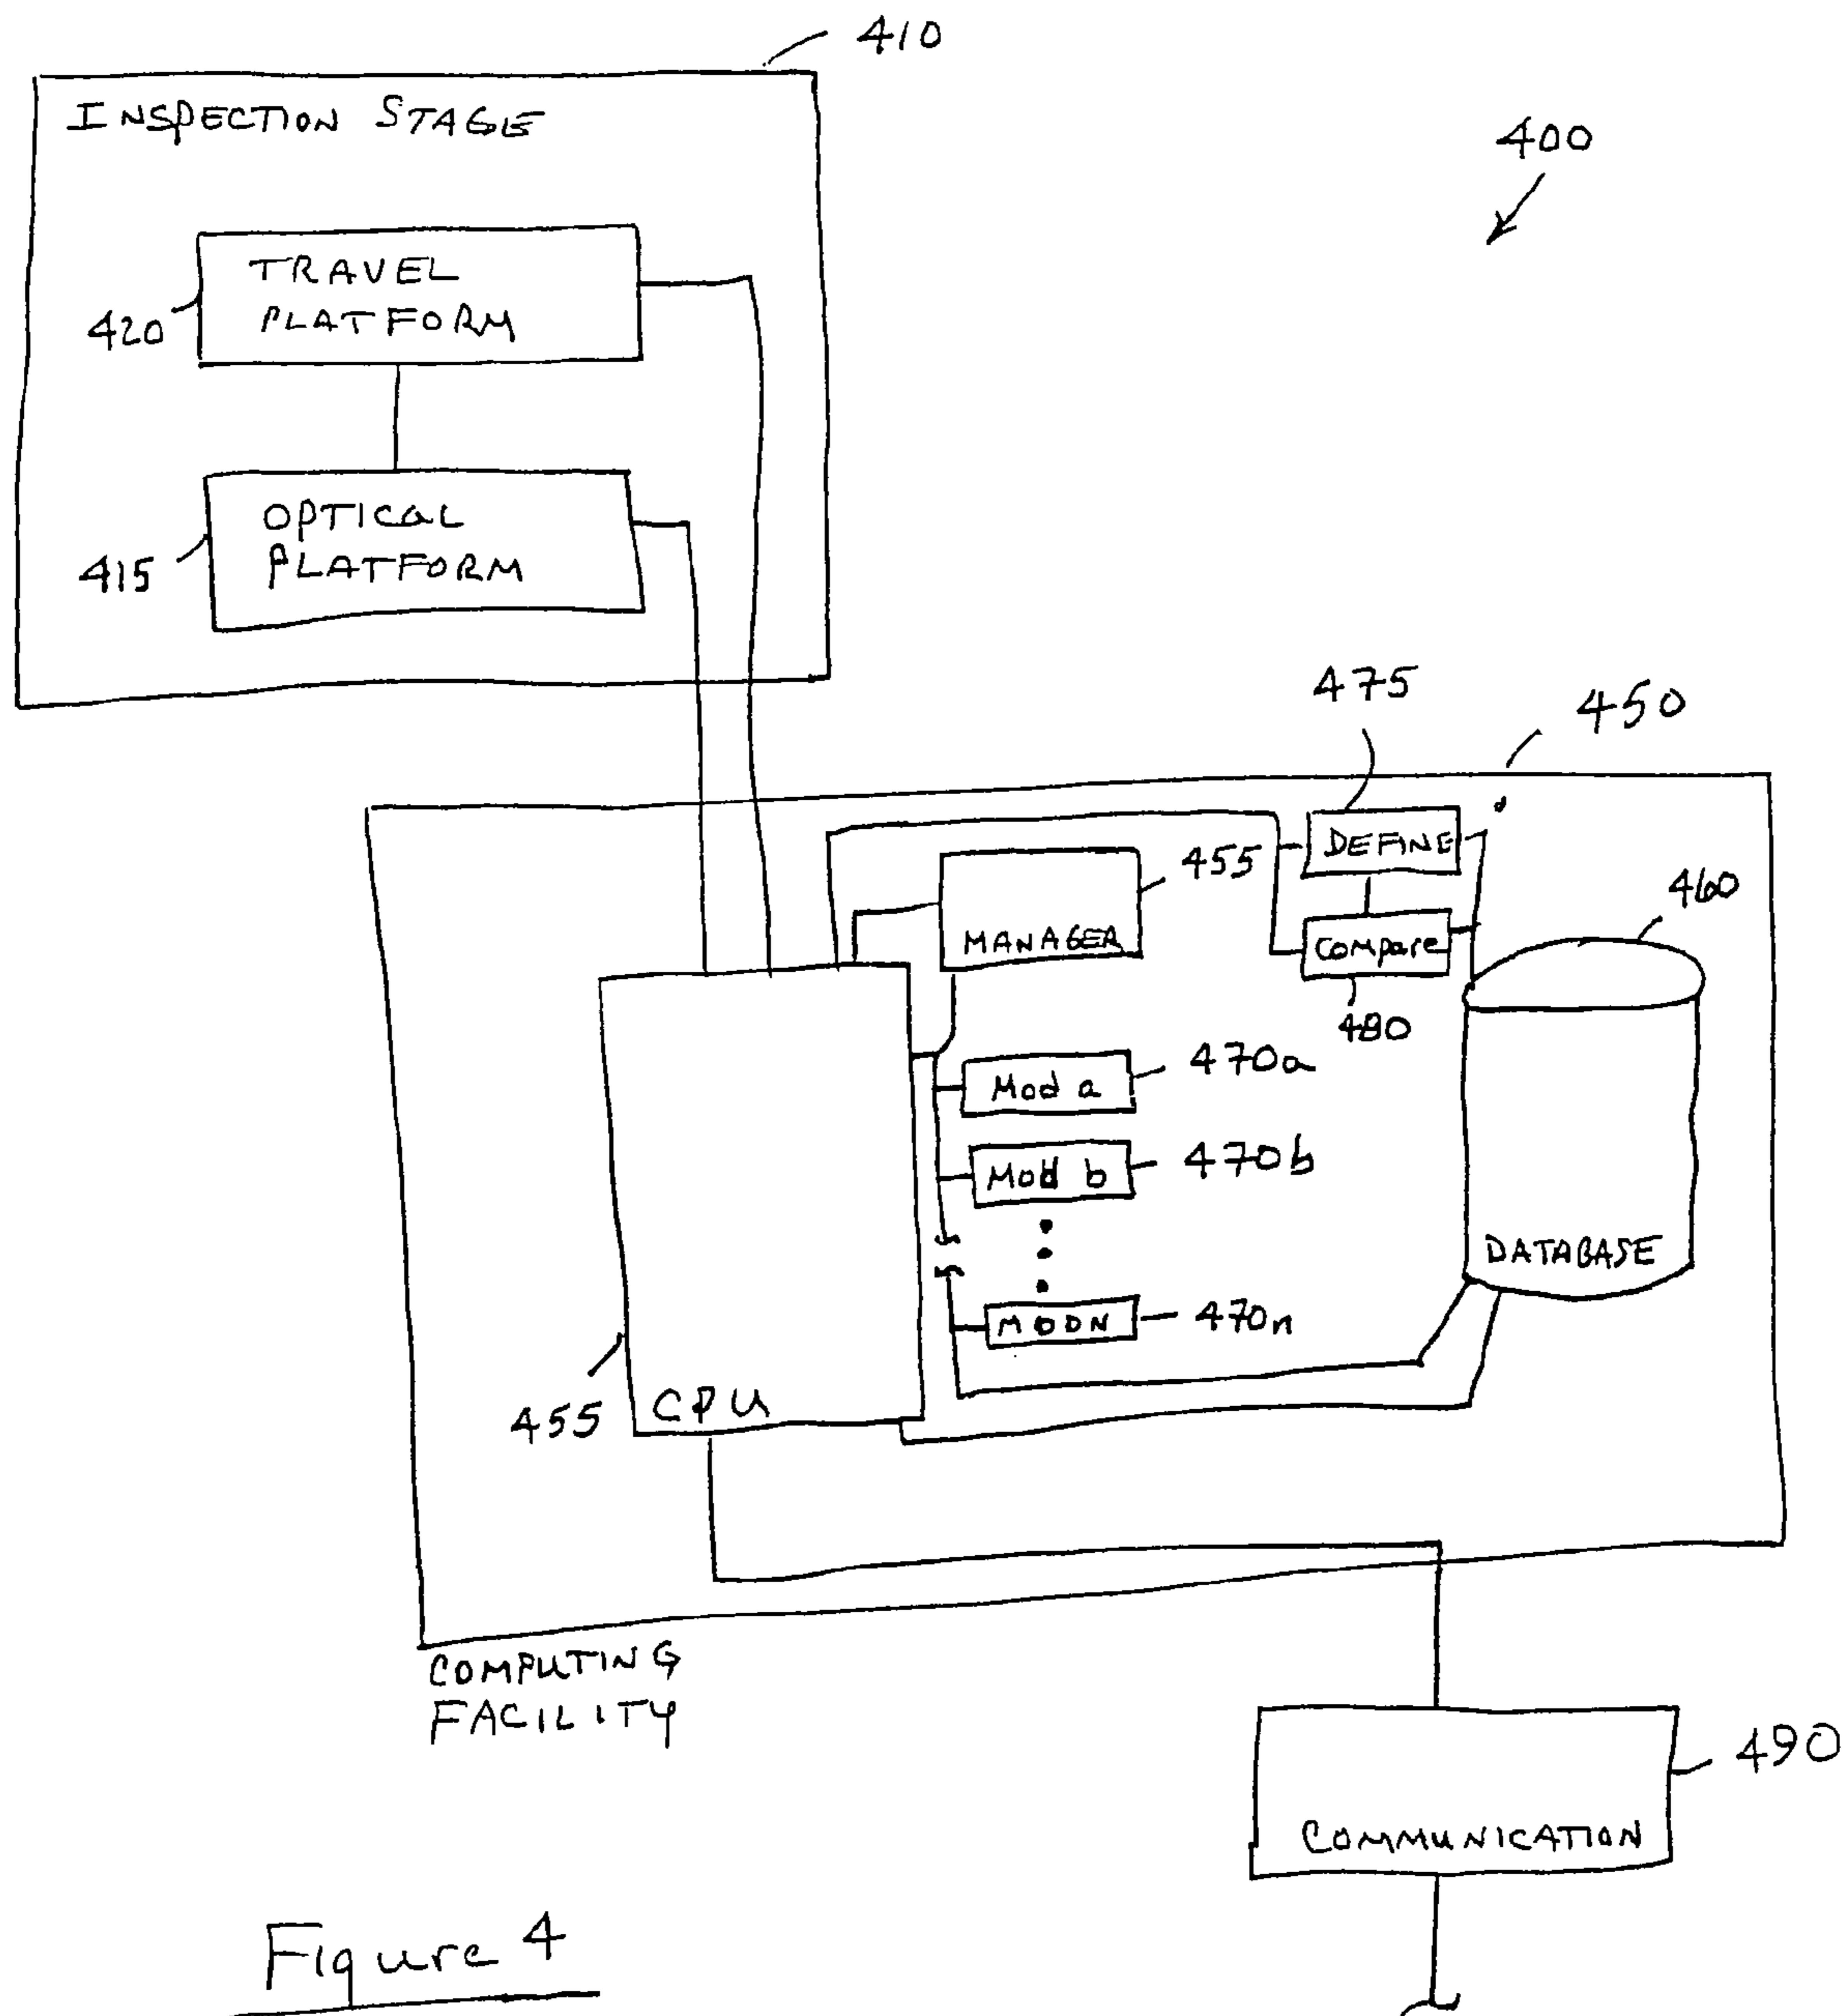 410
INSPECTION STAGE
400
TRAVEL
PLATFORM
420
OPTICAL
PLATFORM
415
475
450
DEFINE
455
460
MANAGER
Compare
480
470a
Mod a
470b
Mod b
DATABASE
MODN
470n
455
CPU
COMPUTING
FACILITY
490
COMMUNICATION
Figure 4